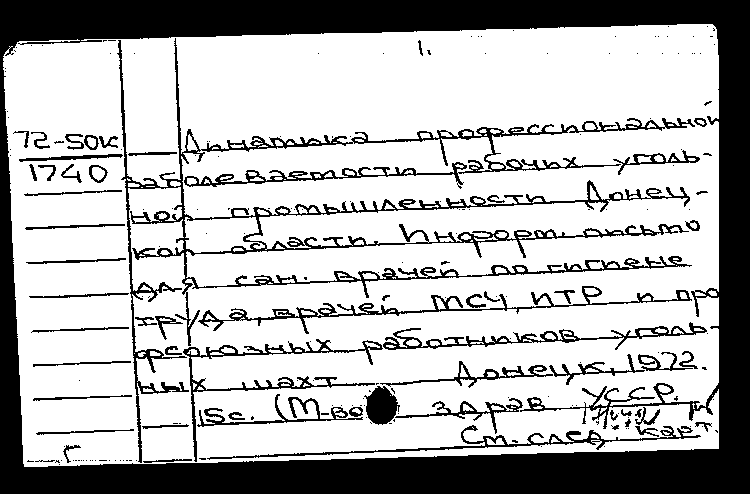 1.
72-50к Динамика профессиональной
1740 заболеваемости рабочих уголь-
ной промышленности Донец-
кой области. Информ. письмо
для сан. врачей по гигиене
труда, врачей МСЧ, ИТР и про
фсоюзных работников уголь-
ных шахт Донецк, 1972.
15с. (М-во здрав УССР.
См. след. карт.
г